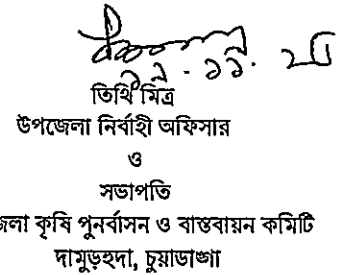 তিথি মিত্র
উপজেলা নির্বাহী অফিসার
ও
সভাপতি
জলা কৃষি পুনর্বাসন ও বাস্তবায়ন কমিটি
দামুড়হুদা, চুয়াডাঙ্গা